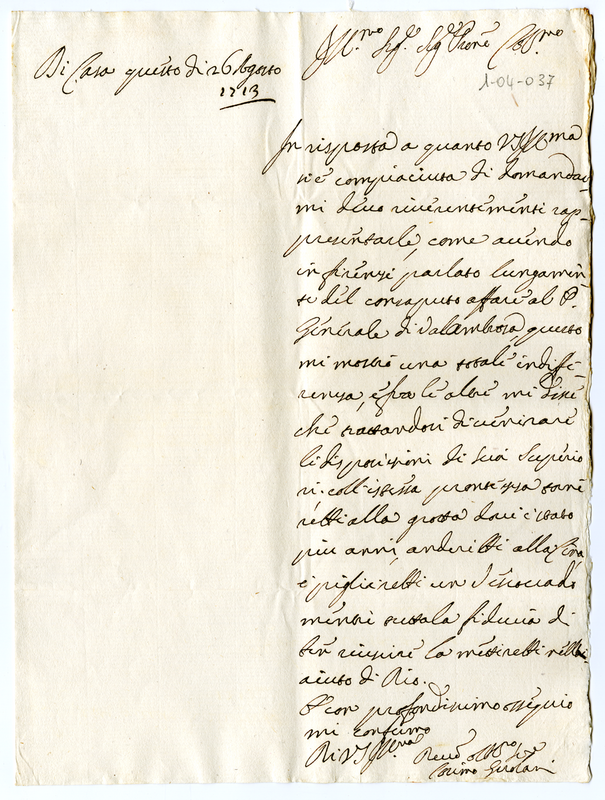 Di Casa questo di 26 Agosto
1713
Ill.mo Sig.re Sig.re Prone Col.mo
1-04-037
In risposta a quanto VS Ill.ma
si è compiaciuta di domandar
mi devo riverentementi rap-
presentarle, come avendo
in firenze parlato lungamen
te del consaputo affare al P.
Generale di Valambrosa, questo
mi mostrò una totale indiffe-
renza, e fra le altre mi disse
che trattandosi di venerare
le disposizioni di suoi Superio
ri coll'istessa prontezza torne
rebbe alla grotta dove è stato
più anni, anderebbe alla
e piglierebbe un
mentre tutta la fiducia di
ben riuscire la metterebbe nell'
aiuto di Dio.
E con profondissimo ossequio
mi confermo
Di VS Ill.ma
Cosimo